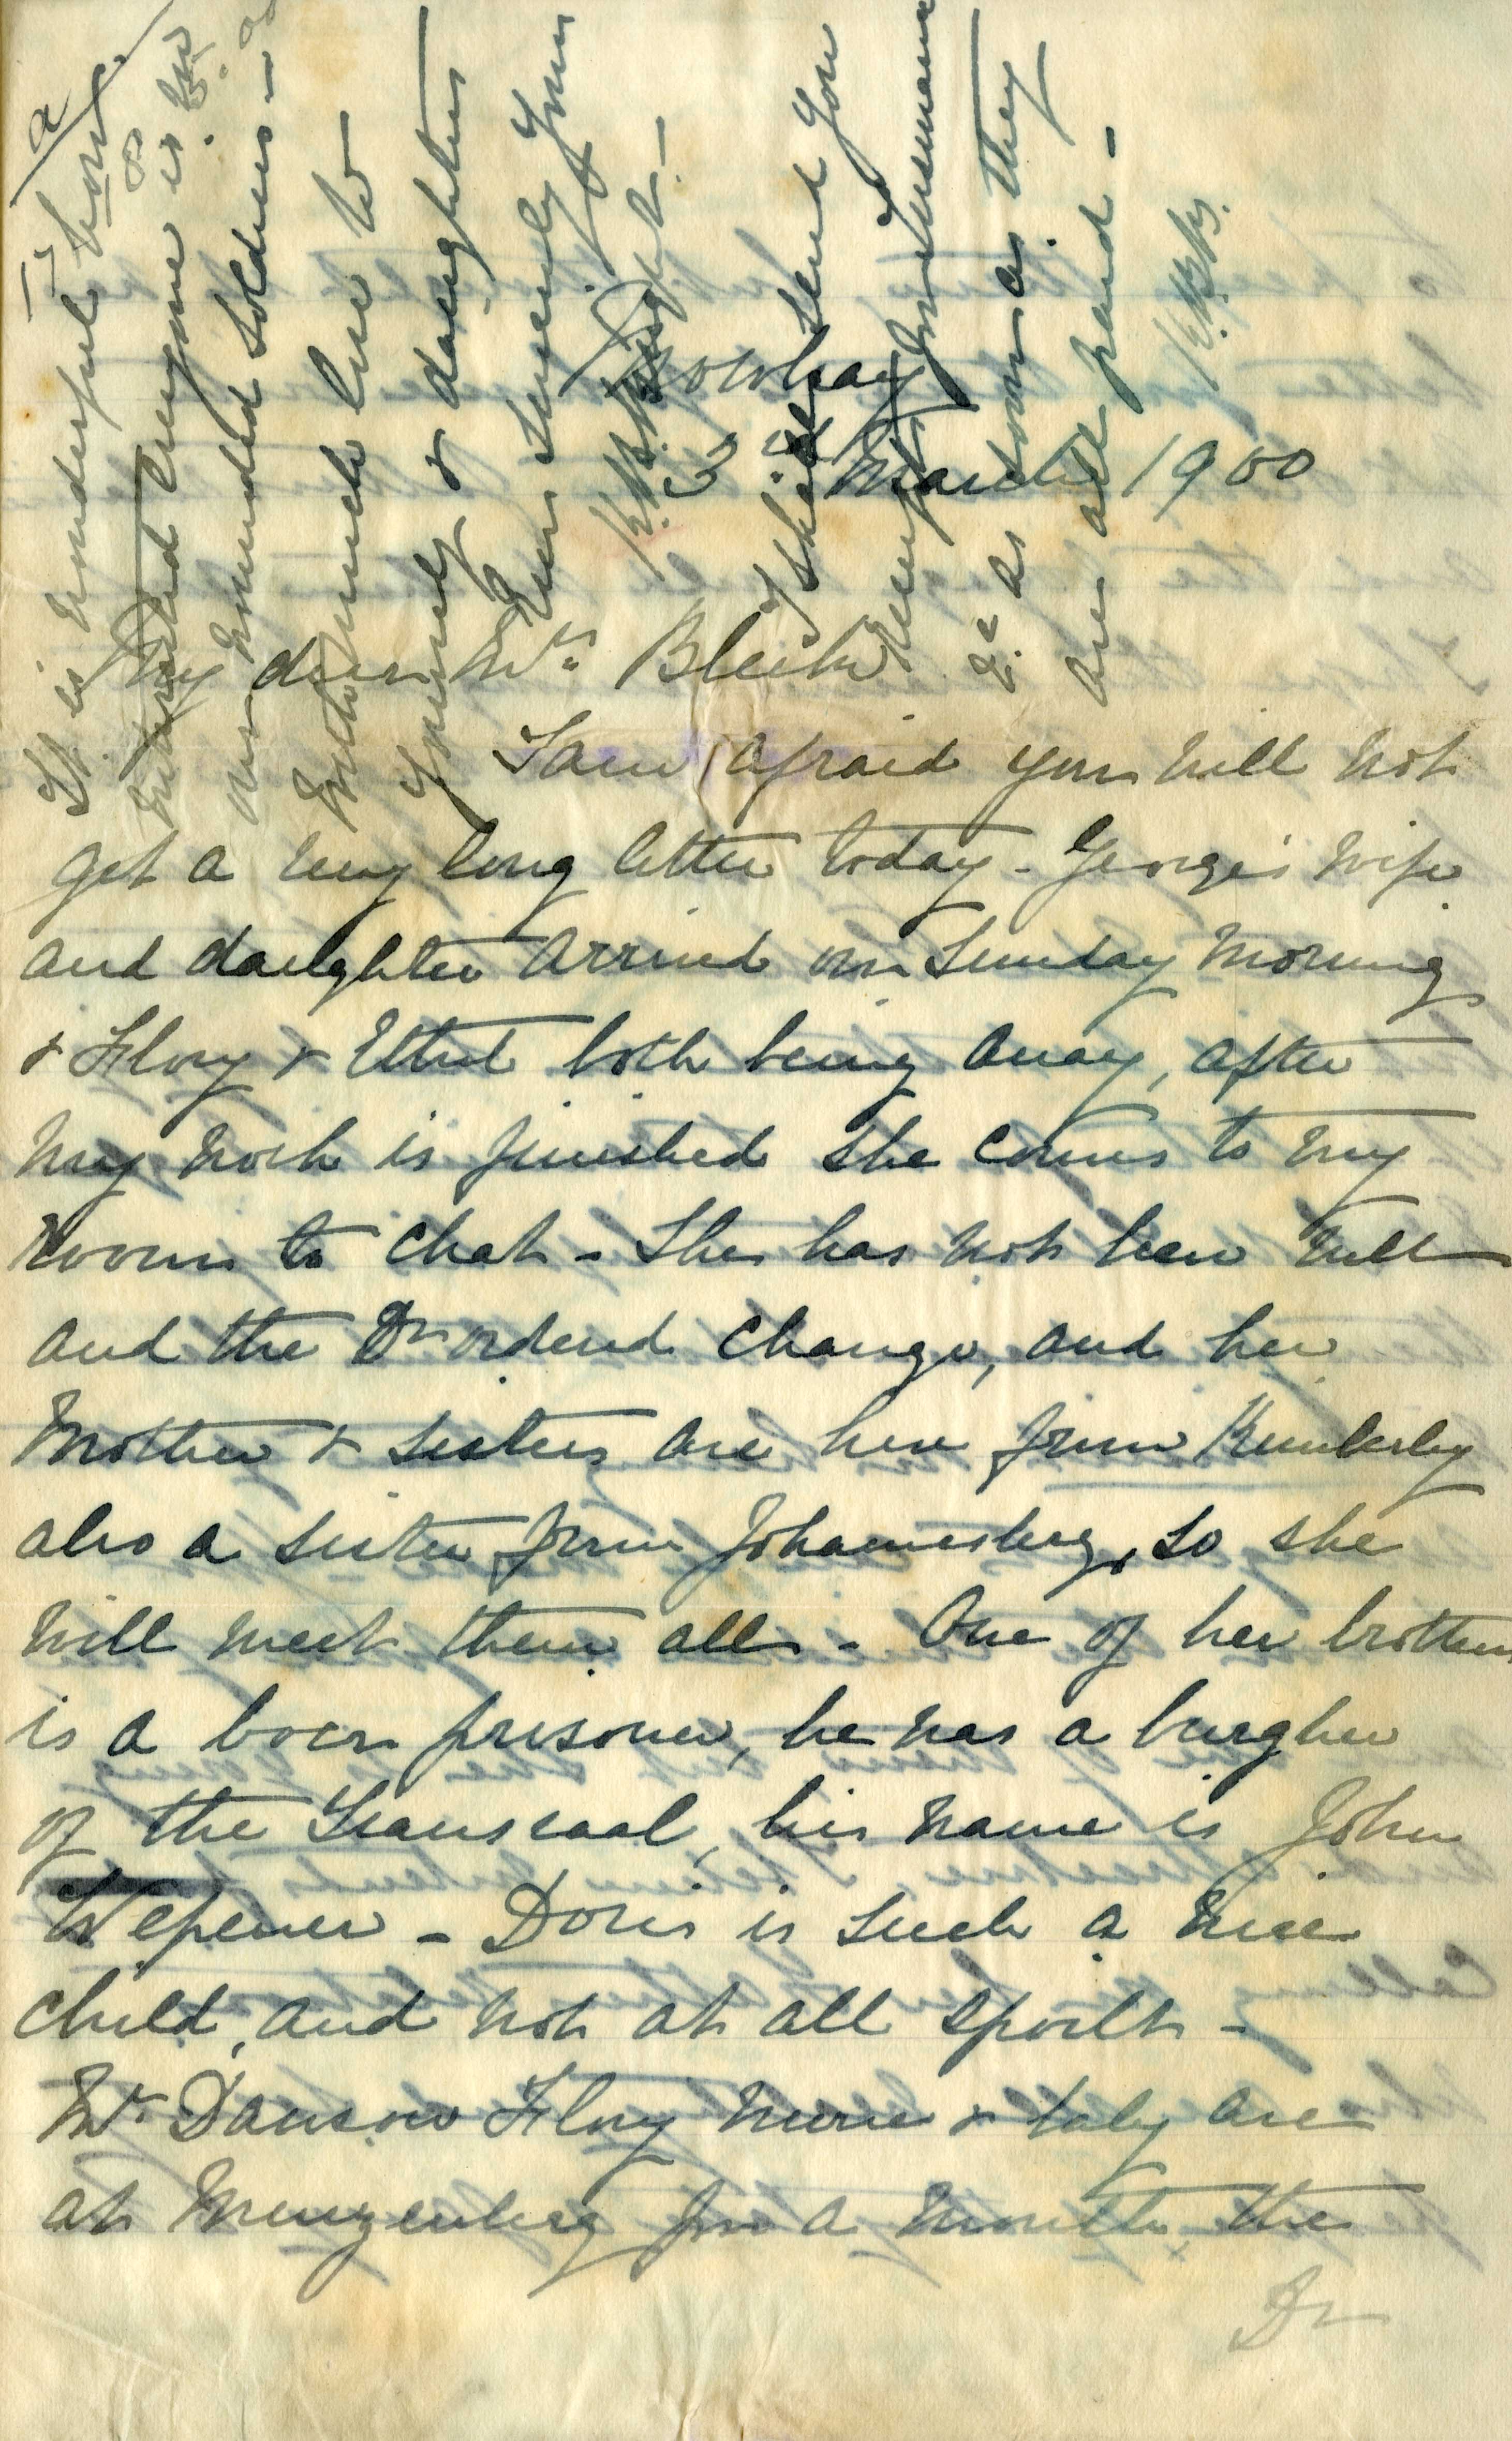 Mowbray
3rd March 1900
My dear Mrs Bleek
I am afraid you will not
get a very long letter today - George's wife
and daughter arrived on Sunday morning
& Flory & Ethel both being away, after
my work is finished she comes to my
room to chat - She has not been well
and the Dr ordered change, and her
Mother & sisters are here from Kimberley
also a sister from Johannesberg, so she
will meet them all - One of her brothers
is a boer prisoner, he was a burgher
of the Transvaal, his name is John
Wepener - Doris is such a nice
child, and not at all spoilt -
Mr Dawson Flory nurse & baby are
at Muizenberg for a month, the
Dr
It is wonderful how
everyone is
our wounded soldiers -
With much love to
yourself & daughters
Yours sincerely
I shall send you
Insurance
&c as soon as they
are all paid -